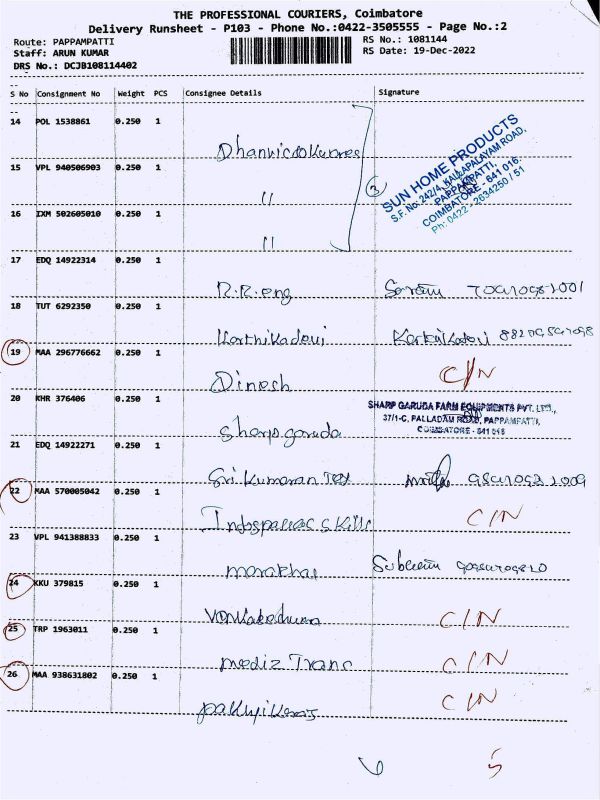 THE PROFESSIONAL COURIERS, Coimbatore
Delivery Runsheet - P103 - Phone No.:0422-3505555 - Page No.:2
Route: PAPPAMPATTI
RS No.: 1081144
Staff: ARUN KUMAR
RS Date: 19-Dec-2022
DRS No.: DCJB108114402
S No Consignment No Weight PCS Consignee Details Signature
14 POL 1538861 0.250 1
15 VPL 940506903 0.250 1
"
3
SUN HOME PRODUCTS
S.F. No: 242/4, KALLAPALAYAM ROAD,
PAPPAMPATTI,
COIMBATORE - 641 016.
Ph: 0422 - 2634250 / 51
16 IXM 502605010 0.250 1
"
17 EDQ 14922314 0.250 1
R.R. eng
18 TUT 6292350 0.250 1
Karthikadevi
19 MAA 296776662 0.250 1
Dinesh C/N
20 KHR 376406 0.250 1
Sharp garuda
SHARP GARUDA FARM EQUIPMENTS PVT. LTD.,
37/1-C, PALLADAM ROAD, PAPPAMPATTI,
COIMBATORE - 641 016
21 EDQ 14922271 0.250 1
Sri Kumaran Tex
22 MAA 570005042 0.250 1
Indospaces Skills C/N
23 VPL 941388833 0.250 1
24 KKU 379815 0.250 1
C/N
25 TRP 1963011 0.250 1
Mediz Trans C/N
26 MAA 938631802 0.250 1
C/N
6 5